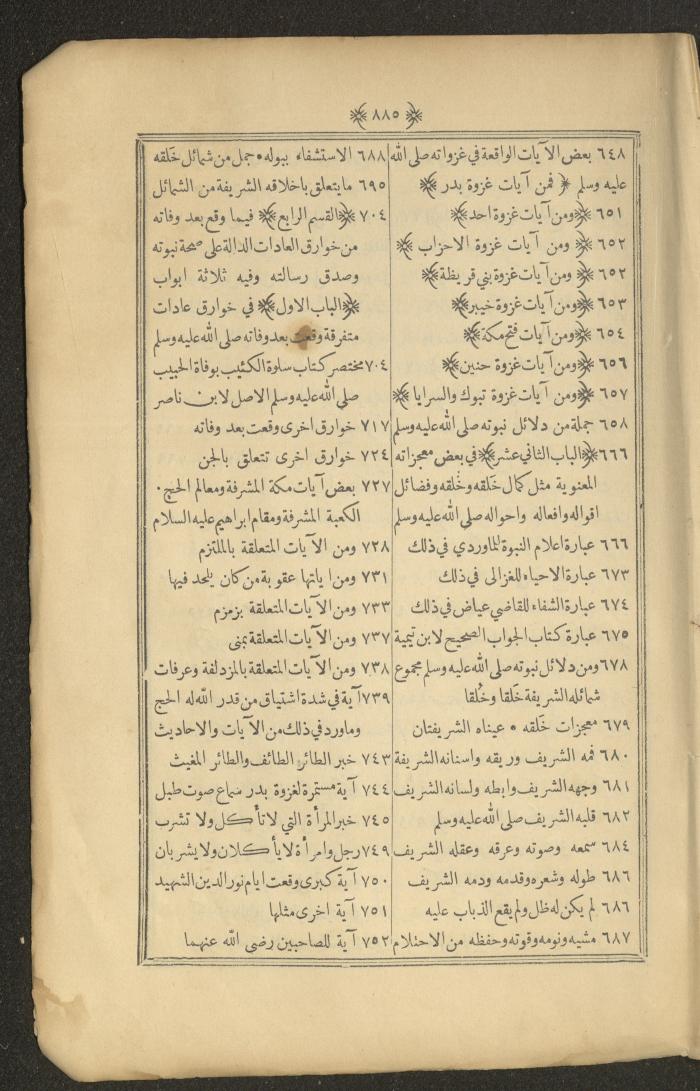 ﴿ ٨٨٥ ﴾
٦٤٨ بعض الآيات الواقعة في غزواته صلى الله
عليه وسلم ﴿ فمن آيات غزوة بدر ﴾
٦٥١ ﴿ ومن آيات غزوة احد ﴾
٦٥٢ ﴿ ومن آيات غزوة الاحزاب ﴾
٦٥٢ ﴿ ومن آيات غزوة بني قريظة ﴾
٦٥٣ ﴿ ومن آيات غزوة خيبر ﴾
٦٥٤ ﴿ ومن آيات فتح مكة ﴾
٦٥٦ ﴿ ومن آيات غزوة حنين ﴾
٦٥٧ ﴿ ومن آيات غزوة تبوك والسرايا ﴾
٦٥٨ جملة من دلائل نبوته صلى الله عليه وسلم
٦٦٦ ﴿ الباب الثاني عشر ﴾ في بعض معجزاته
المعنوية مثل كمال خَلقه وخُلقه وفضائل
اقواله وافعاله واحواله صلى الله عليه وسلم
٦٦٦ عبارة اعلام النبوة للماوردي في ذلك
٦٧٣ عبارة الاحياء للغزالى في ذلك
٦٧٤ عبارة الشفاء للقاضي عياض في ذلك
٦٧٥ عبارة كتاب الجواب الصحيح لابن تيمية
٦٧٨ ومن دلائل نبوته صلى الله عليه وسلم مجموع
شمائله الشريفة خَلقا وخُلقا
٦٧٩ معجزات خَلقه • عيناه الشريفتان
٦٨٠ فمه الشريف وريقه واسنانه الشريفة
٦٨١ وجهه الشريف وابطه ولسانه الشريف
٦٨٢ قلبه الشريف صلى الله عليه وسلم
٦٨٤ سمعه وصوته وعرقه وعقله الشريف
٦٨٦ طوله وشعره وقدمه ودمه الشريف
٦٨٦ لم يكن له ظل ولم يقع الذباب عليه
٦٨٧ مشيه ونومه وقوته وحفظه من الاحتلام
٦٨٨ الاستشفاء ببوله • جمل من شمائل خَلقه
٦٩٥ ما يتعلق باخلاقه الشريفة من الشمائل
٧٠٤ ﴿ القسم الرابع ﴾ فيما وقع بعد وفاته
من خوارق العادات الدالة على صحة نبوته
وصدق رسالته وفيه ثلاثة ابواب
﴿ الباب الاول ﴾ في خوارق عادات
متفرقة وقعت بعد وفاته صلى الله عليه وسلم
٧٠٤ مختصر كتاب سلوة الكئيب بوفاة الحبيب
صلى الله عليه وسلم الاصل لابن ناصر
٧١٧ خوارق اخرى وقعت بعد وفاته
٧٢٤ خوارق اخرى تتعلق بالجن
٧٢٧ بعض آيات مكة المشرفة ومعالم الحج •
الكعبة المشرفة ومقام ابراهيم عليه السلام
٧٢٨ ومن الآيات المتعلقة بالملتزم
٧٣١ ومن اياتها عقوبة من كان يلحد فيها
٧٣٣ ومن الآيات المتعلقة بزمزم
٧٣٧ ومن الآيات المتعلقة بمنى
٧٣٨ ومن الآيات المتعلقة بالمزدلفة وعرفات
٧٣٩ آية في شدة اشتياق من قدر الله له الحج
وماورد في ذلك من الآيات والاحاديث
٧٤٣ خبر الطائر الطائف والطائر المغيث
٧٤٤ آية مستمرة لغزوة بدر سماع صوت طبل
٧٤٥ خبر المرأة التي لا تأكل ولا تشرب
٧٤٩ رجل وامرأة لا يأكلان ولا يشربان
٧٥٠ آية كبرى وقعت ايام نور الدين الشهيد
٧٥١ آية اخرى مثلها
٧٥٢ آية للصاحبين رضى الله عنهما